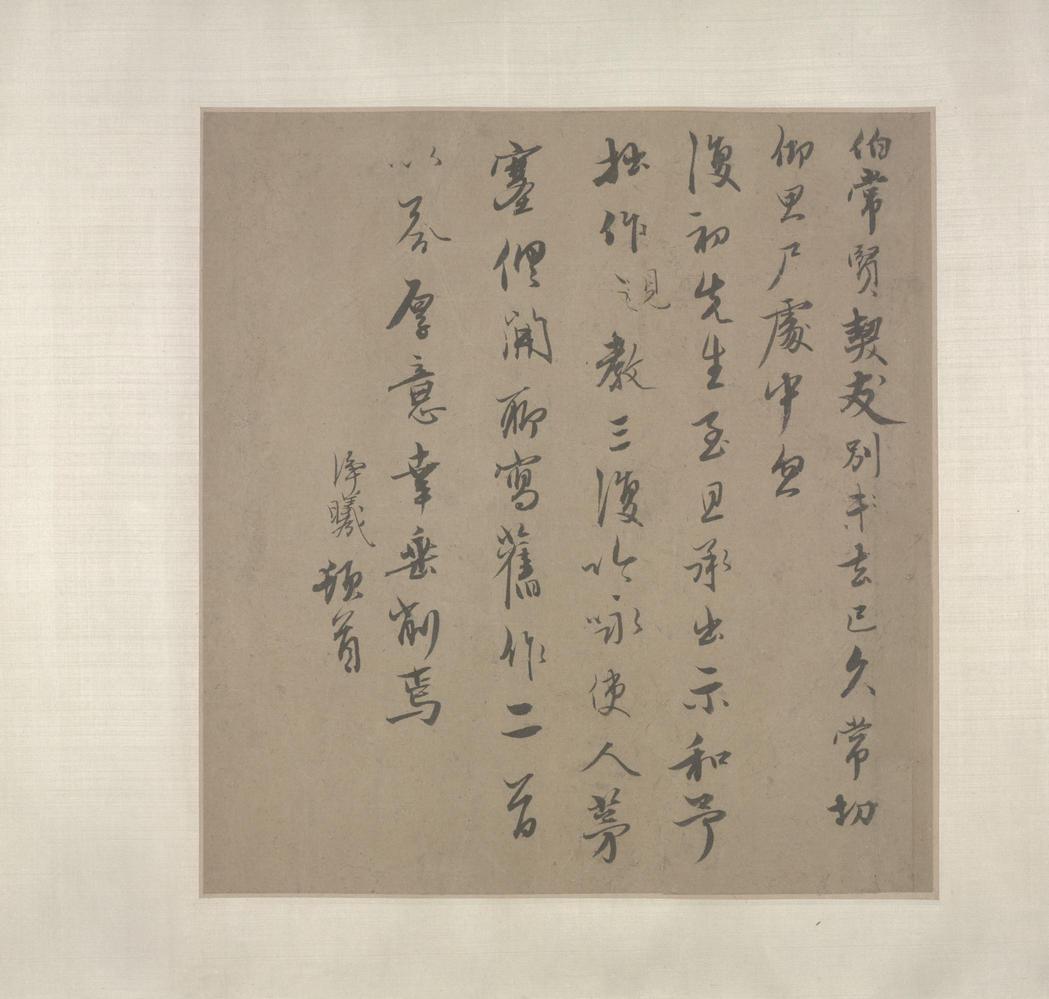 伯常賢契友別来去已久常切
仰思尸處中忽
復初先生至且承出示和予
拙作親教三復吟咏使人茅
塞俱開聊寫舊作二首
以答厚意幸垂削焉
淨曦頓首